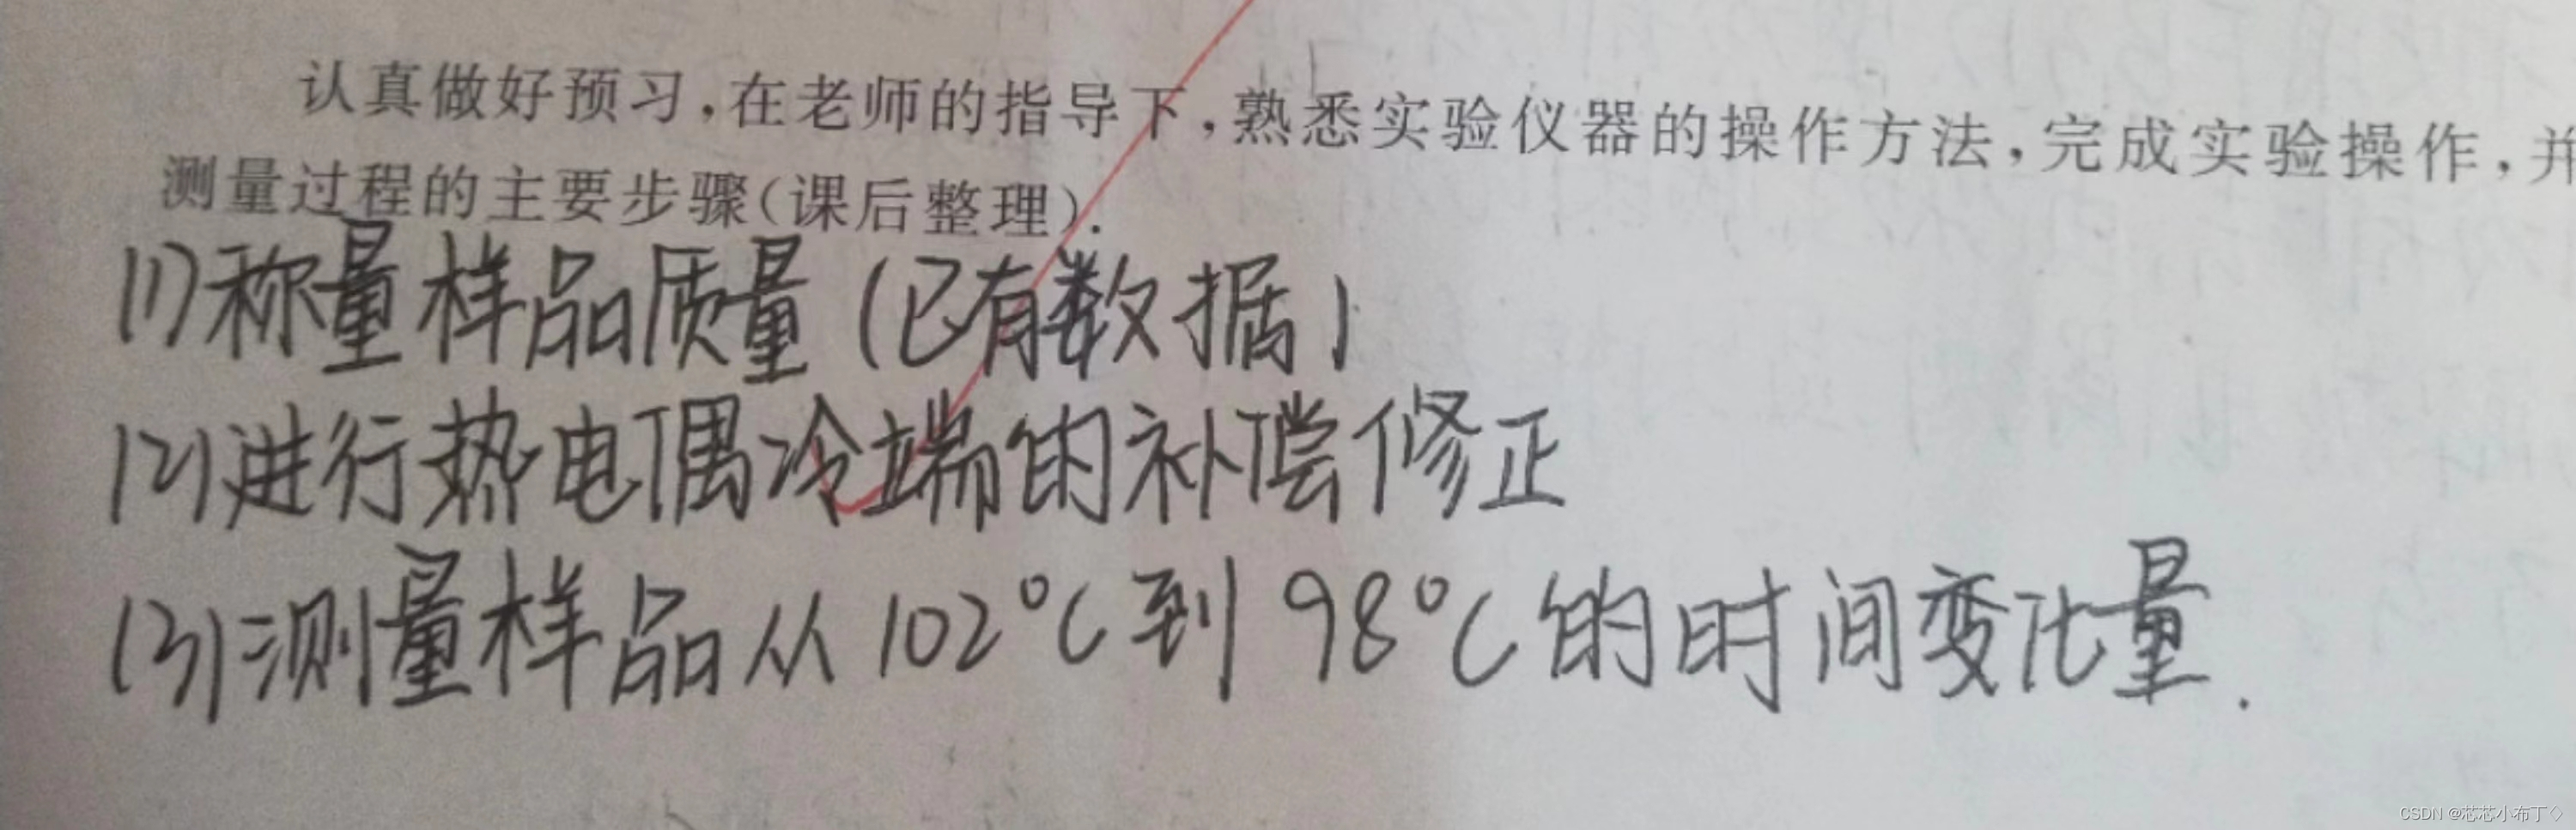 认真做好预习,在老师的指导下,熟悉实验仪器的操作方法,完成实验操作,并
测量过程的主要步骤(课后整理).
(1)称量样品质量(已有数据)
(2)进行热电偶冷端的补偿修正
(3)测量样品从102°C到98°C的时间变化量.
CSDN @芯芯小布丁◇